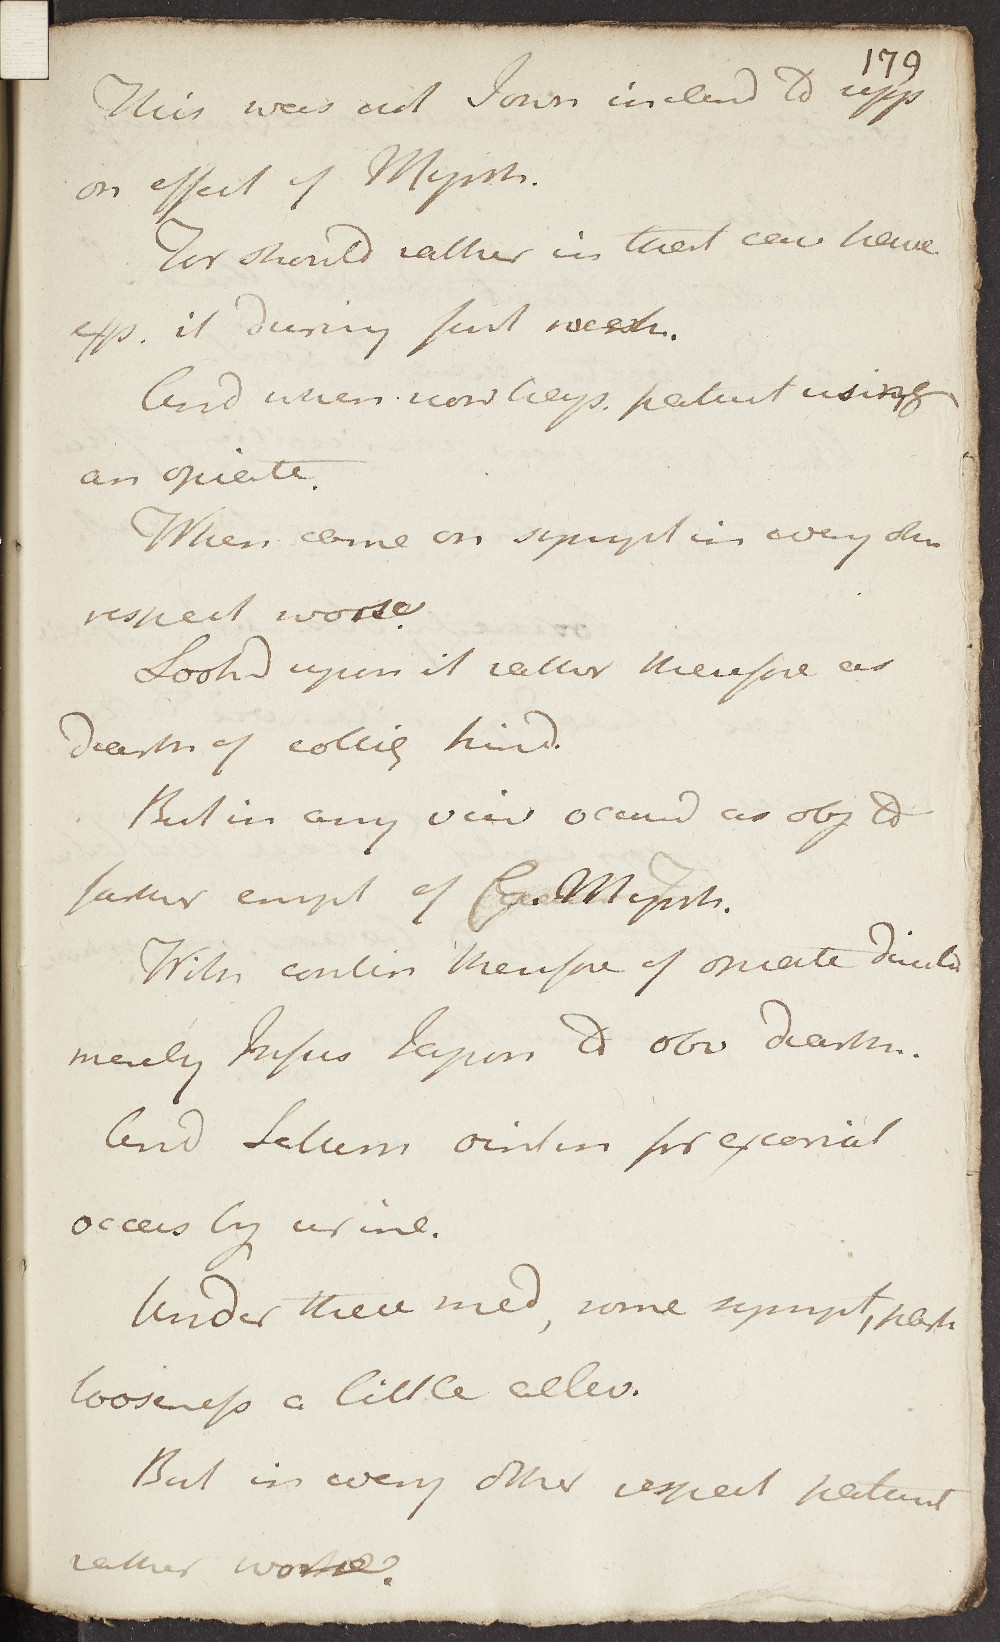 179
This was not I own inclend to upp
on effect of Myrrh.
For should rather in that case have
exp. it during first week.
And when now heys. patient using
an opiate.
When came on sympt in every other
respect worse.
Look'd upon it rather therefore as
diarrh of colliq kind.
But in any view occurd as obj to
farther empt of Myrrh.
With contin therefore of opiate directed
merely Infus Japon to obv diarrh.
And Saturn ointm for excoriat
occas by urine.
Under these med, some sympt, part
looseness a little allev.
But in every other respect patient
rather worse.